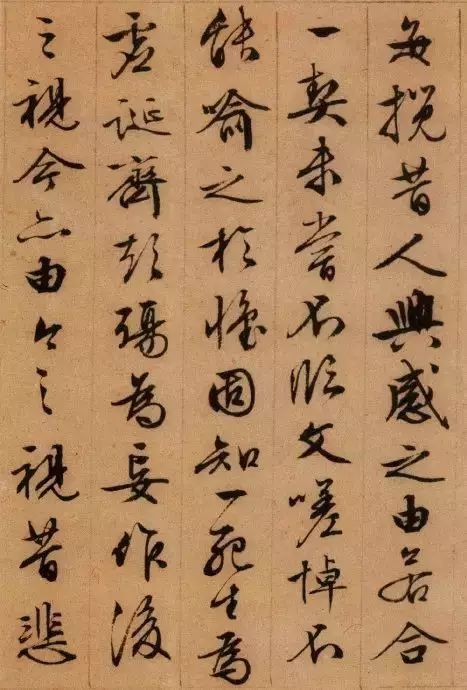 每攬昔人興感之由若合
一契未嘗不臨文嗟悼不
能喻之於懷固知一死生為
虛誕齊彭殤為妄作後
之視今亦由今之視昔悲